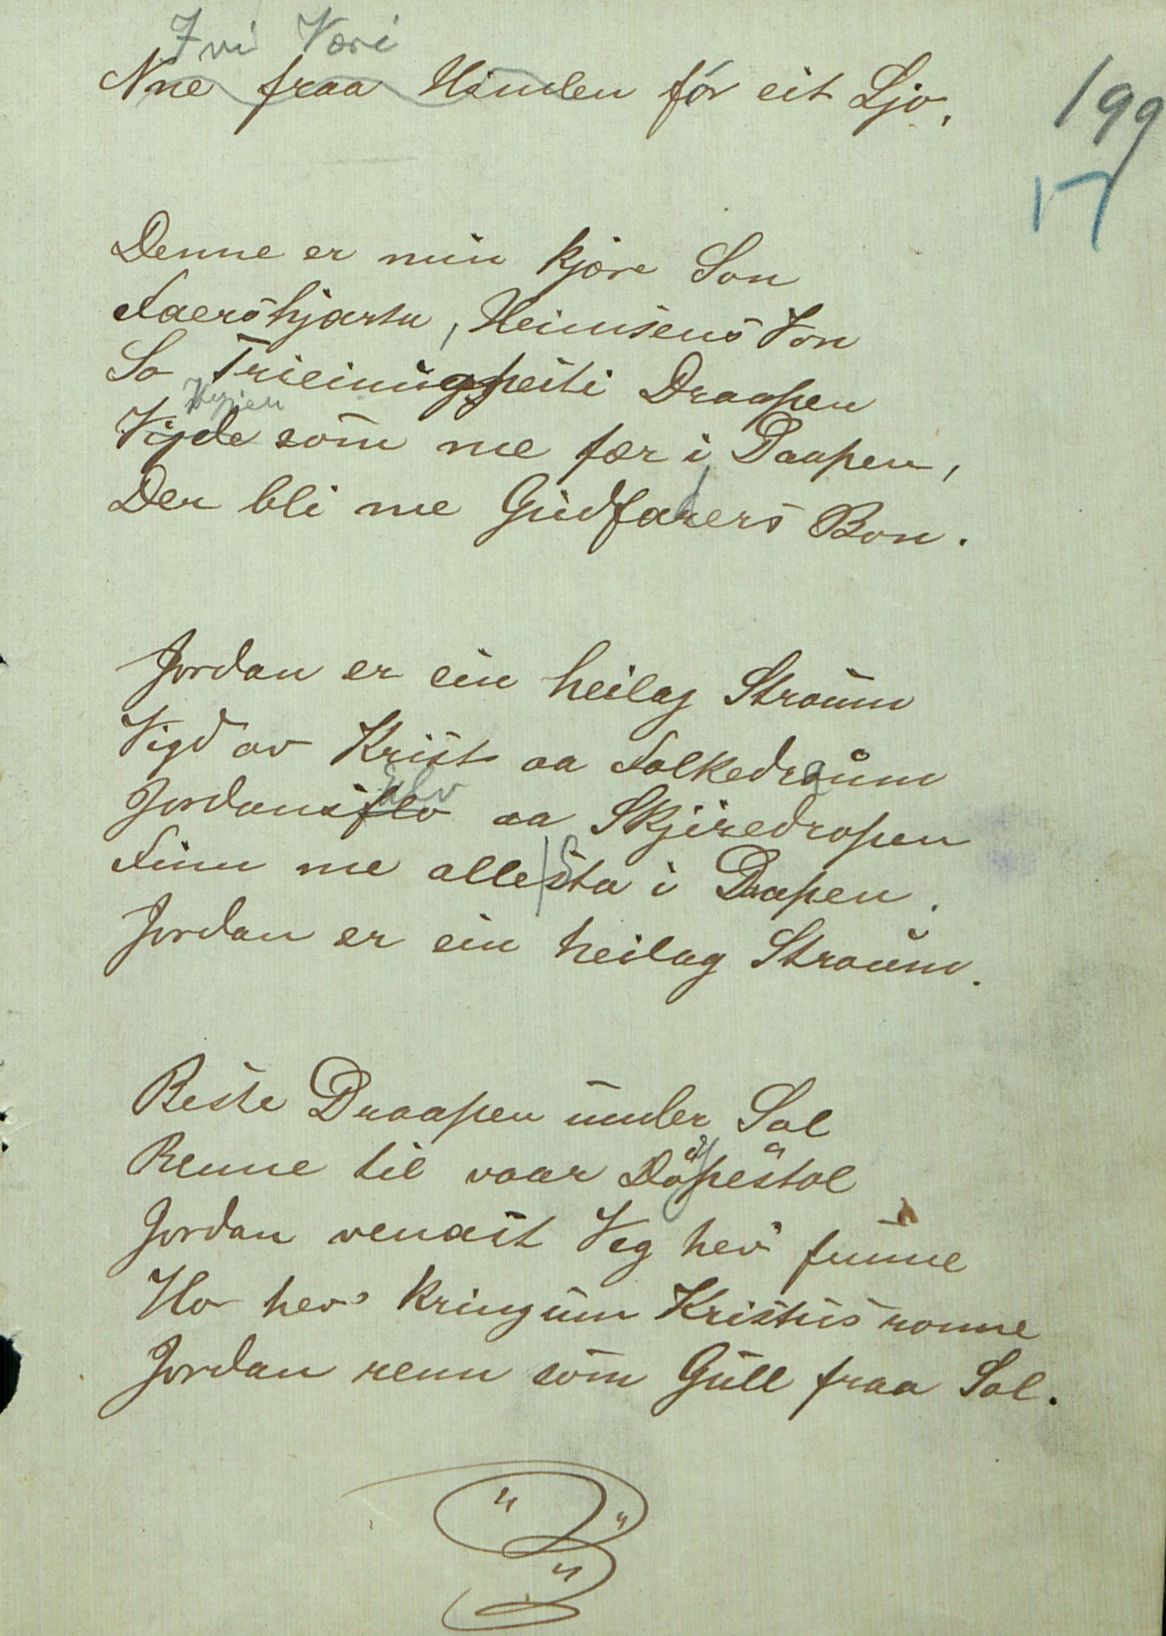 Ivi Veri
Nne fraa Himlen fór eit Ljo,
199
17
Denne er min kjære Son
Faershjarta, Heimsens Von
So Trieiningspeiti Draapen
Vigde som me fær i Daapen,
Der bli me Gudfaders Bon.
Jordan er ein heilag Straum
Vigd av Krist aa Folkedraum
Jordanselv aa Skjiredropen
Finn me allesta i Daapen.
Jordan er ein heilag Straum.
Beste Draapen under Sol
Renne til vaar Döpestol
Jordan venast Veg hev' funne
Ho hev' kringum Kristus ronne
Jordan renn som Gull fraa Sol.